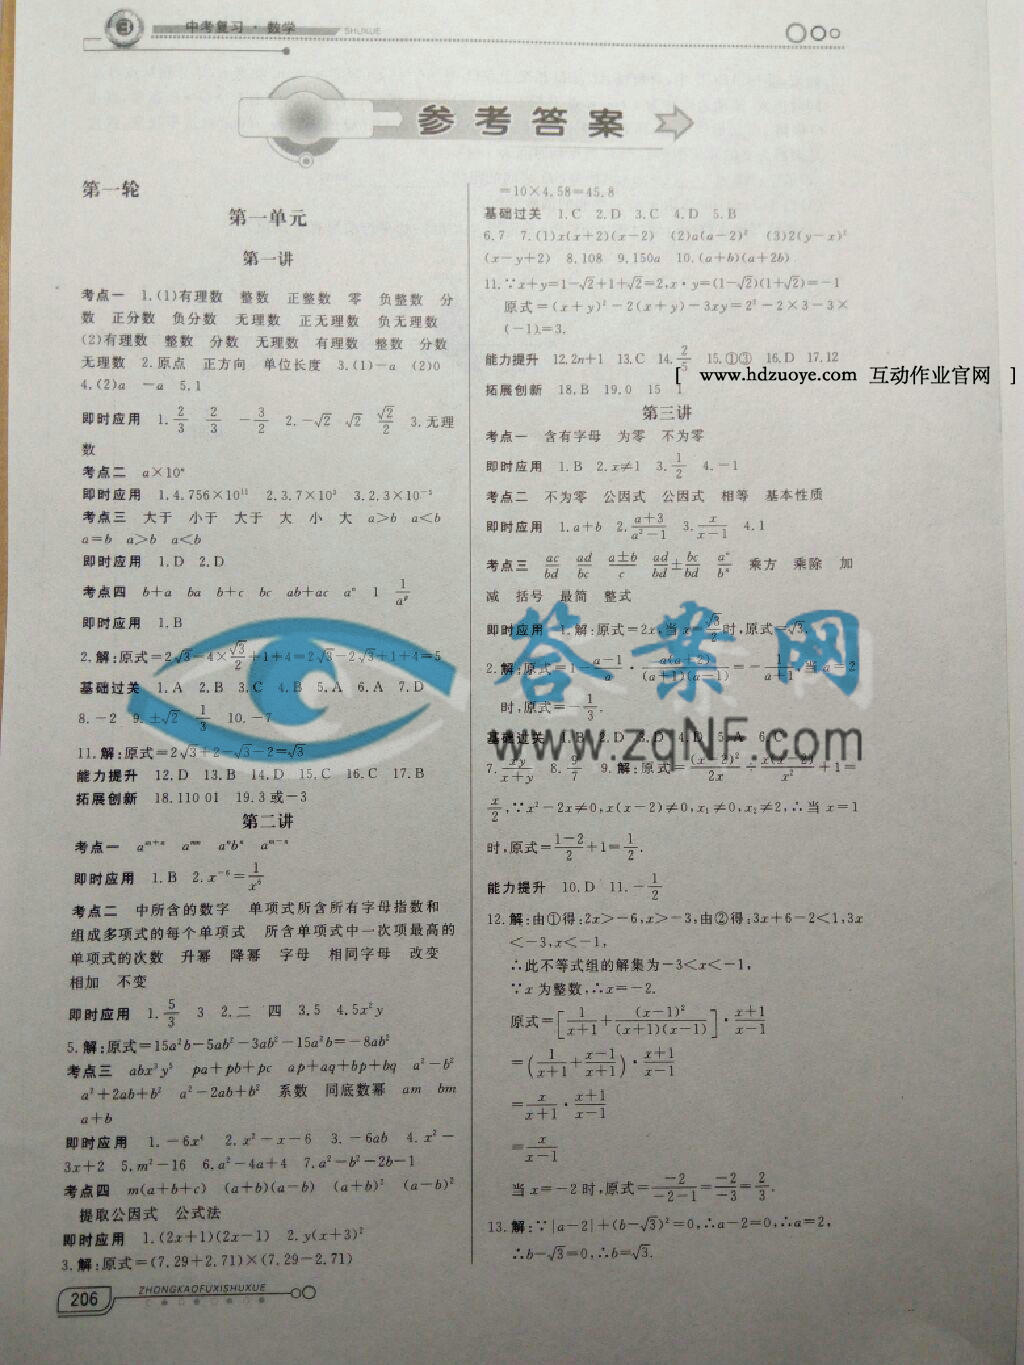 中考复习·数学
SHUXUE
参考答案
第一轮
第一单元
第一讲
考点一 1.(1)有理数 整数 正整数 零 负整数 分
数 正分数 负分数 无理数 正无理数 负无理数
(2)有理数 整数 分数 无理数 有理数 整数 分数
无理数 2.原点 正方向 单位长度 3.(1)-a (2)0
4.(2)a -a 5.1
即时应用 1.2/3 2/3 -3/2 2.-√2 √2 √2/2 3.无理
数
考点二 a×10ⁿ
即时应用 1.4.756×10¹¹ 2.3.7×10⁵ 3.2.3×10⁻⁵
考点三 大于 小于 大于 大 小 大 a>b a<b
a=b a>b a<b
即时应用 1.D 2.D
考点四 b+a ba b+c bc ab+ac aⁿ 1 1/aᵖ
即时应用 1.B
2.解:原式=2√3-4×√3/2+1+4=2√3-2√3+1+4=5
基础过关 1.A 2.B 3.C 4.B 5.A 6.A 7.D
8.-2 9.±√2 1/3 10.-7
11.解:原式=2√3+2-√3-2=√3
能力提升 12.D 13.B 14.D 15.C 16.C 17.B
拓展创新 18.110 01 19.3或-3
第二讲
考点一 aᵐ⁺ⁿ aᵐⁿ aⁿbⁿ aᵐ⁻ⁿ
即时应用 1.B 2.x⁻⁶=1/x⁶
考点二 中所含的数字 单项式所含所有字母指数和
组成多项式的每个单项式 所含单项式中一次项最高的
单项式的次数 升幂 降幂 字母 相同字母 改变
相加 不变
即时应用 1.5/3 3 2.二 四 3.5 4.5x²y
5.解:原式=15a²b-5ab²-3ab²-15a²b=-8ab²
考点三 abx³y⁵ pa+pb+pc ap+aq+bp+bq a²-b²
a²+2ab+b² a²-2ab+b² 系数 同底数幂 am bm
a+b
即时应用 1.-6x⁴ 2.x²-x-6 3.-6ab 4.x²-
3x+2 5.m²-16 6.a²-4a+4 7.a²-b²-2b-1
考点四 m(a+b+c) (a+b)(a-b) (a+b)² (a-b)²
提取公因式 公式法
即时应用 1.(2x+1)(2x-1) 2.y(x+3)²
3.解:原式=(7.29+2.71)×(7.29-2.71)
=10×4.58=45.8
基础过关 1.C 2.D 3.C 4.D 5.B
6.7 7.(1)x(x+2)(x-2) (2)a(a-2)² (3)2(y-x)²
(x-y+2) 8.108 9.150a 10.(a+b)(a+2b)
11.∵x+y=1-√2+1+√2=2,x·y=(1-√2)(1+√2)=-1
原式=(x+y)²-2(x+y)-3xy=2²-2×3-3×
(-1)=3.
能力提升 12.2n+1 13.C 14.2/5 15.①③ 16.D 17.12
[ www.hdzuoye.com 互动作业官网 ]
拓展创新 18.B 19.0 15 1
第三讲
考点一 含有字母 为零 不为零
即时应用 1.B 2.x≠1 3.1/2 4.-1
考点二 不为零 公因式 公因式 相等 基本性质
即时应用 1.a+b 2.(a+3)/(a²-1) 3.x/(x-1) 4.1
考点三 ac/bd ad/bc (a±b)/c ad/bd±bc/bd aⁿ/bⁿ 乘方 乘除 加
减 括号 最简 整式
即时应用 1.解:原式=2x,当x=√3/2时,原式=√3.
2.解:原式=1-(a-1)/a·a(a+2)/(a+1)(a-1)=-1/(a+1),当a=2
时,原式=-1/3.
答案网
www.zqNF.com
基础过关 1.B 2.D 3.D 4.D 5.A 6.C
7.xy/(x+y) 8.9/7 9.解:原式=(x-2)²/2x÷x(x-2)/x²+1=
x/2,∵x²-2x≠0,x(x-2)≠0,x₁≠0,x₂≠2,∴当x=1
时,原式=(1-2)/2+1=1/2.
能力提升 10.D 11.-1/2
12.解:由①得:2x>-6,x>-3,由②得:3x+6-2<1,3x
<-3,x<-1,
∴此不等式组的解集为-3<x<-1,
∵x为整数,∴x=-2.
原式=[1/(x+1)+(x-1)²/(x+1)(x-1)]·(x+1)/(x-1)
=(1/(x+1)+(x-1)/(x+1))·(x+1)/(x-1)
=x/(x+1)·(x+1)/(x-1)
=x/(x-1)
当x=-2时,原式=-2/(-2-1)=-2/-3=2/3.
13.解:∵|a-2|+(b-√3)²=0,∴a-2=0,∴a=2,
∴b-√3=0,∴b=√3.
206
ZHONGKAOFUXISHUXUE